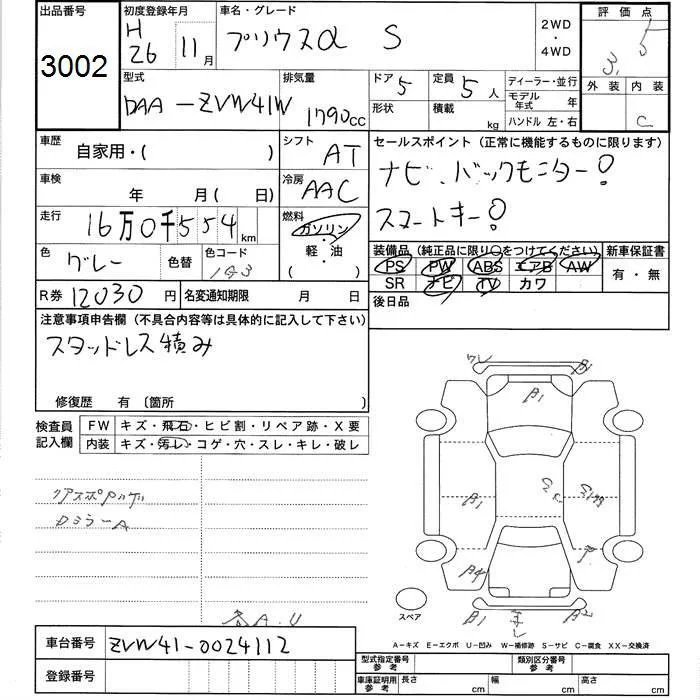 出品番号
3002
初度登録年月
H 26 11月
車名・グレード
プリウスα S
2WD
・
4WD
評価点
3.5
外装 内装
C
型式
DAA-ZVW41W
排気量
1790cc
ドア 5
形状
定員 5人
積載 kg
ディーラー・並行
モデル年式 年
ハンドル 左・右
車歴
自家用・( )
シフト AT
車検
年 月( 日)
冷房 AAC
走行
16万0千554km
燃料
ガソリン
軽・油
( )
色 グレー
色替
色コード
1G3
R券 12030円
名変通知期限 月 日
セールスポイント(正常に機能するものに限ります)
ナビ、バックモニター!
スマートキー!
装備品(純正品に限り○をつけてください)
PS PW ABS エアB AW
SR ナビ TV カワ
新車保証書
有・無
後日品
注意事項申告欄(不具合内容等は具体的に記入して下さい)
スタッドレス積み
修復歴 有〔箇所 〕
検査員
記入欄
FW キズ・飛石・ヒビ割・リペア跡・X要
内装 キズ・汚レ・コゲ・穴・スレ・キレ・破レ
DミラーA
各A.U
スペア
車台番号 ZVW41-0024112
登録番号
A−キズ E−エクボ U−凹み W−補修跡 S−サビ C−腐食 XX−交換済
型式指定番号
参考
類別区分番号
参考
車庫証明用
参考
長さ cm
幅 cm
高さ cm